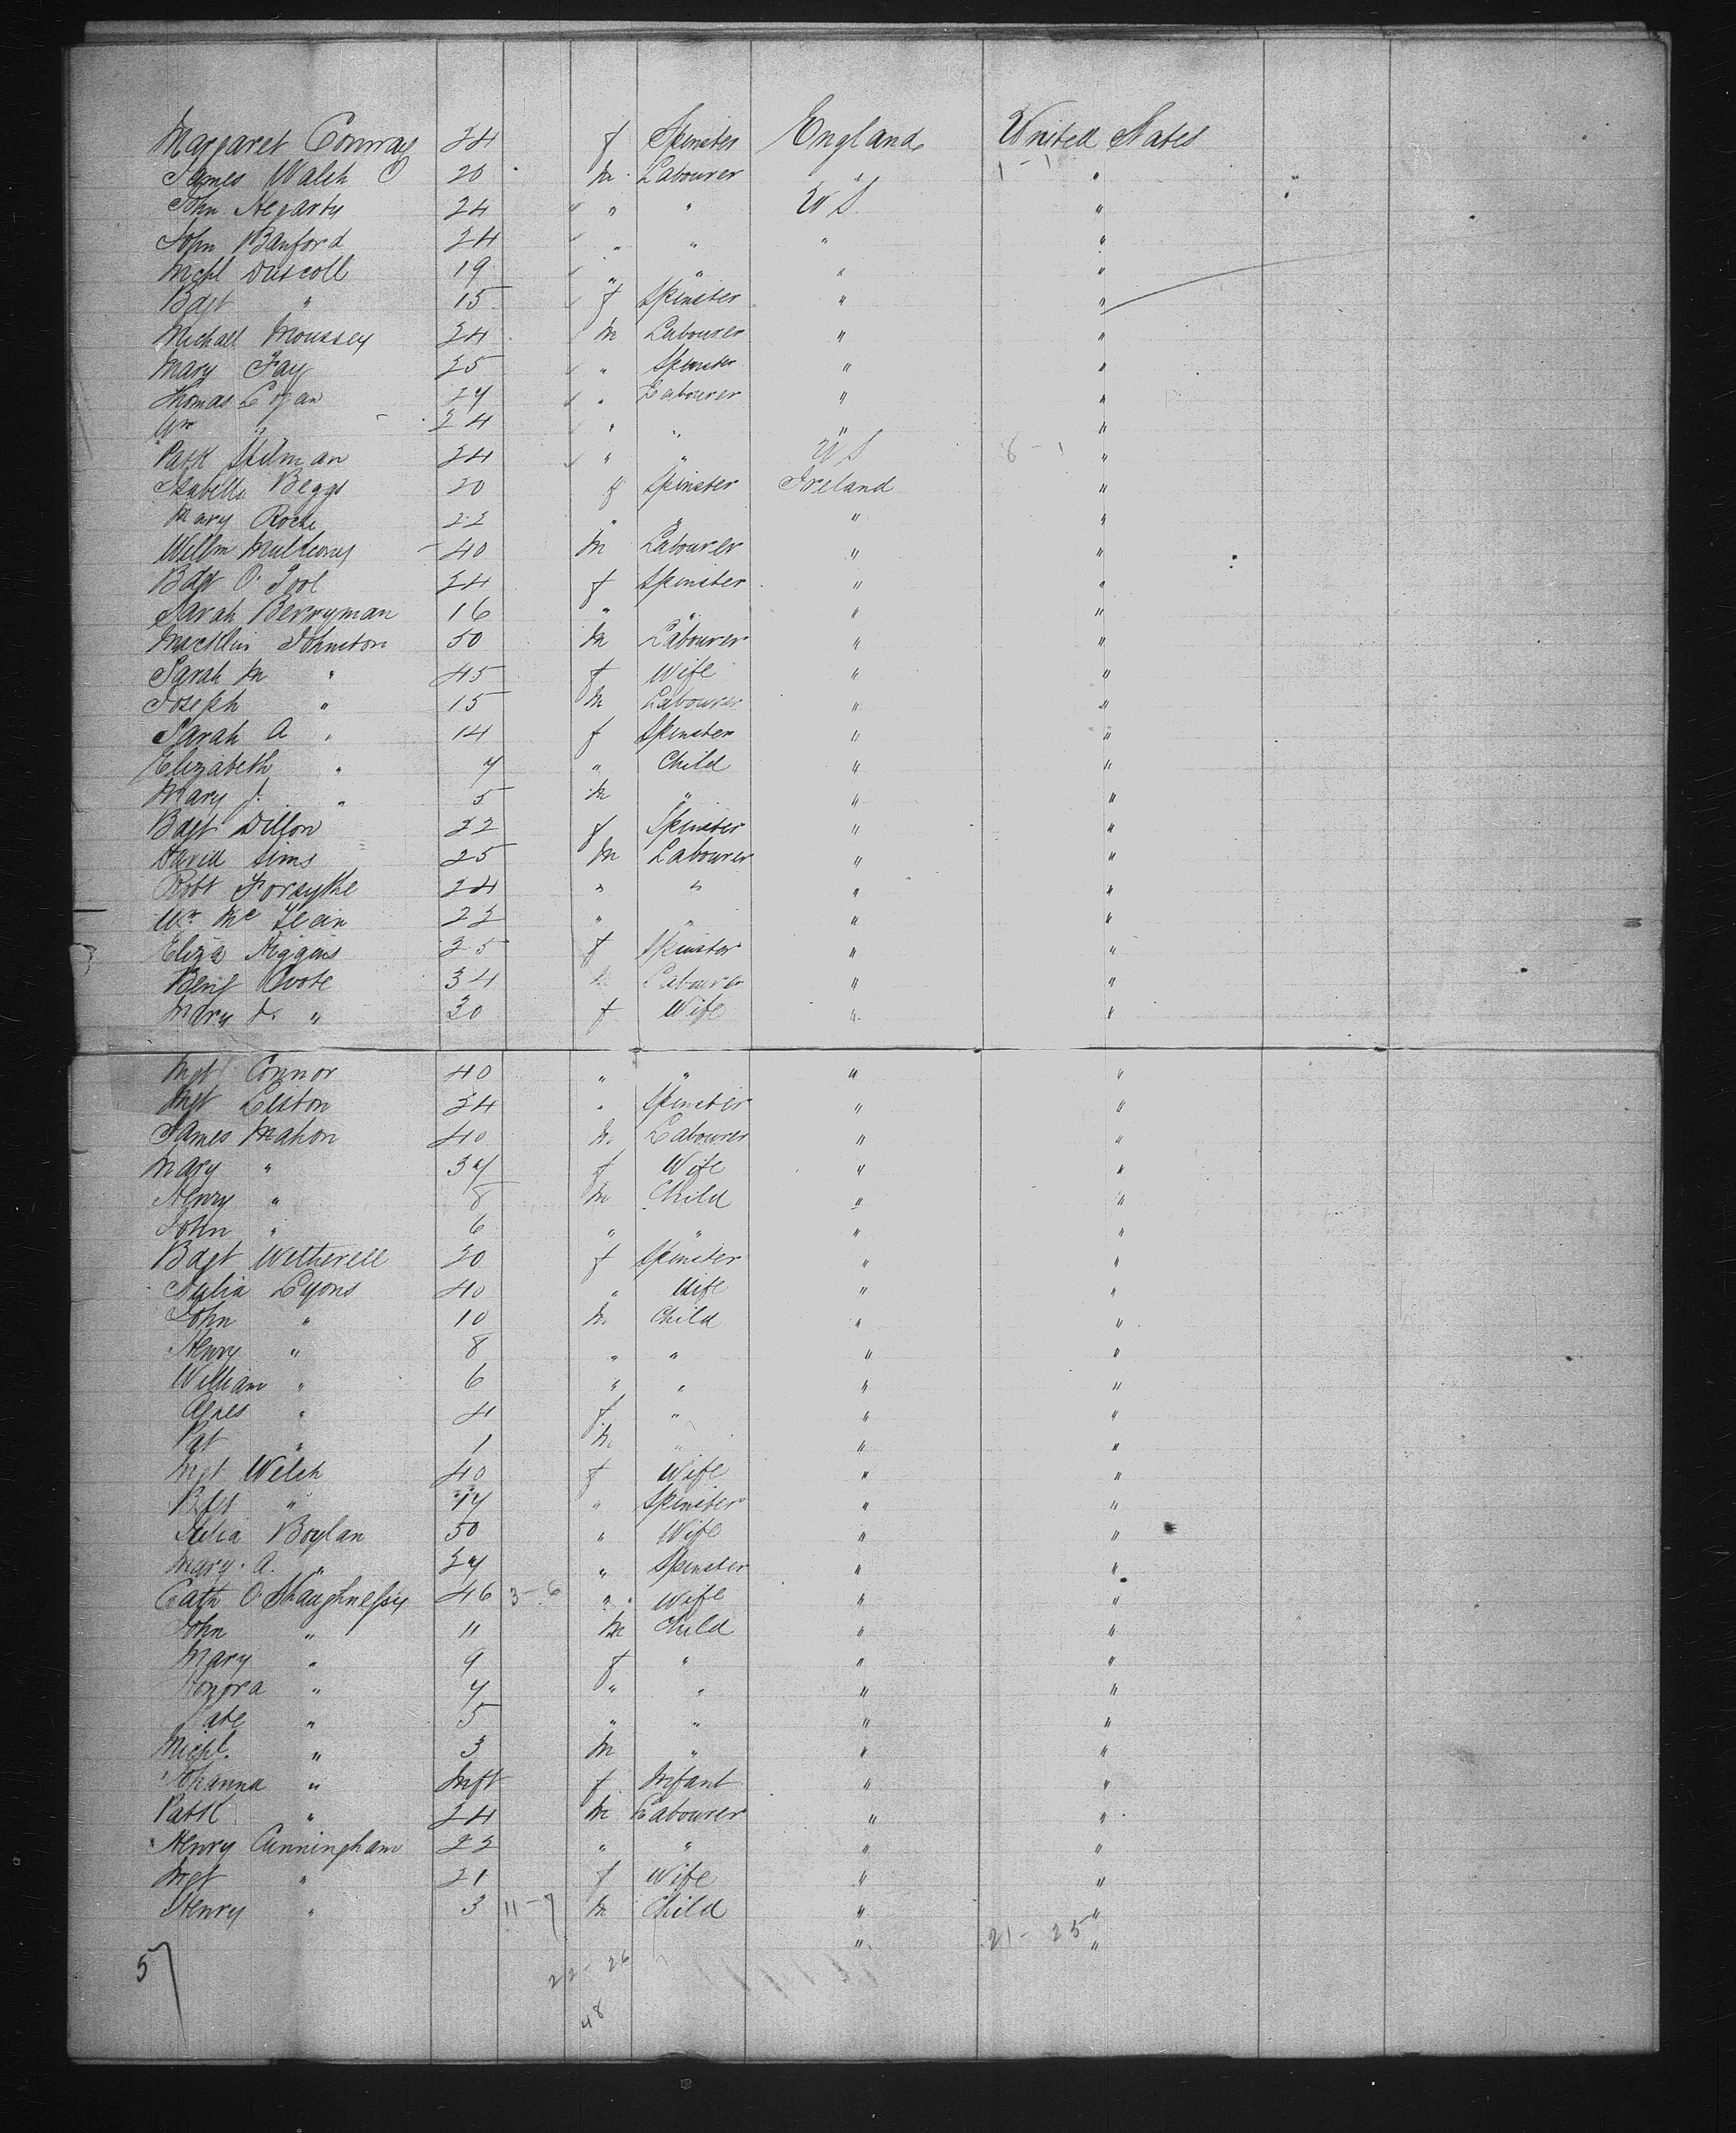 Margaret Conway 24 f Spinster England United States
James Walsh 20 m Labourer " 1-1 "
John Hegarty 24 " " " U S "
John Banford 24 " " " "
Michl Driscoll 19 " " " "
Bdgt " 15 f Spinster " "
Michael Moussey 24 m Labourer " "
Mary Fay 25 " Spinster " "
Thomas Logan 27 " Labourer " "
Wm " 24 " " " "
Patk Stilman 24 " " U S 8-1 "
Isabella Beggs 20 f Spinster Ireland "
Mary Roche 22 " " " "
Willm 40 m Labourer " "
Bdgt O'Tool 24 f Spinster " "
Sarah Berryman 16 " " " "
Johnston 50 m Labourer " "
Sarah M " 45 f Wife " "
Joseph " 15 m Labourer " "
Sarah A " 14 f Spinster " "
Elizabeth " 7 " Child " "
Mary J. " 5 m " " "
Bdgt Dillon 22 f Spinster " "
David Sims 25 m Labourer " "
Robt Forsythe 24 " " " "
Wm Mc 22 " " " "
Eliza Higgins 25 f Spinster " "
Benj 34 m Labourer " "
Mary J. " 30 f Wife " "
Mgt Connor 40 " " " "
Mgt Liston 24 " Spinster " "
James Mahon 40 m Labourer " "
Mary " 37 f Wife " "
Henry " 8 m Child " "
John " 6 " " " "
Bdgt Wetherell 20 f Spinster " "
Julia Lyons 40 " Wife " "
John " 10 m Child " "
Henry " 8 " " " "
William " 6 " " " "
Agnes " 4 f " " "
Pat " 1 m " " "
Mgt Welsh 40 f Wife " "
Bdgt " 17 " Spinster " "
Julia Boylan 50 " Wife " "
Mary A. " 27 " Spinster " "
Cath O'Shaughnessy 46 3-6 " Wife " "
John " 11 m Child " "
Mary " 9 f " " "
Honora " 7 " " " "
Kate " 5 " " " "
Michl. " 3 m " " "
Johanna " Inft f Infant " "
Patk " 24 m Labourer " "
Henry Cunningham 22 " " " "
Mgt " 21 f Wife " "
Henry " 3 11-7 m Child " "
" 21-25 "
57 22-26
48